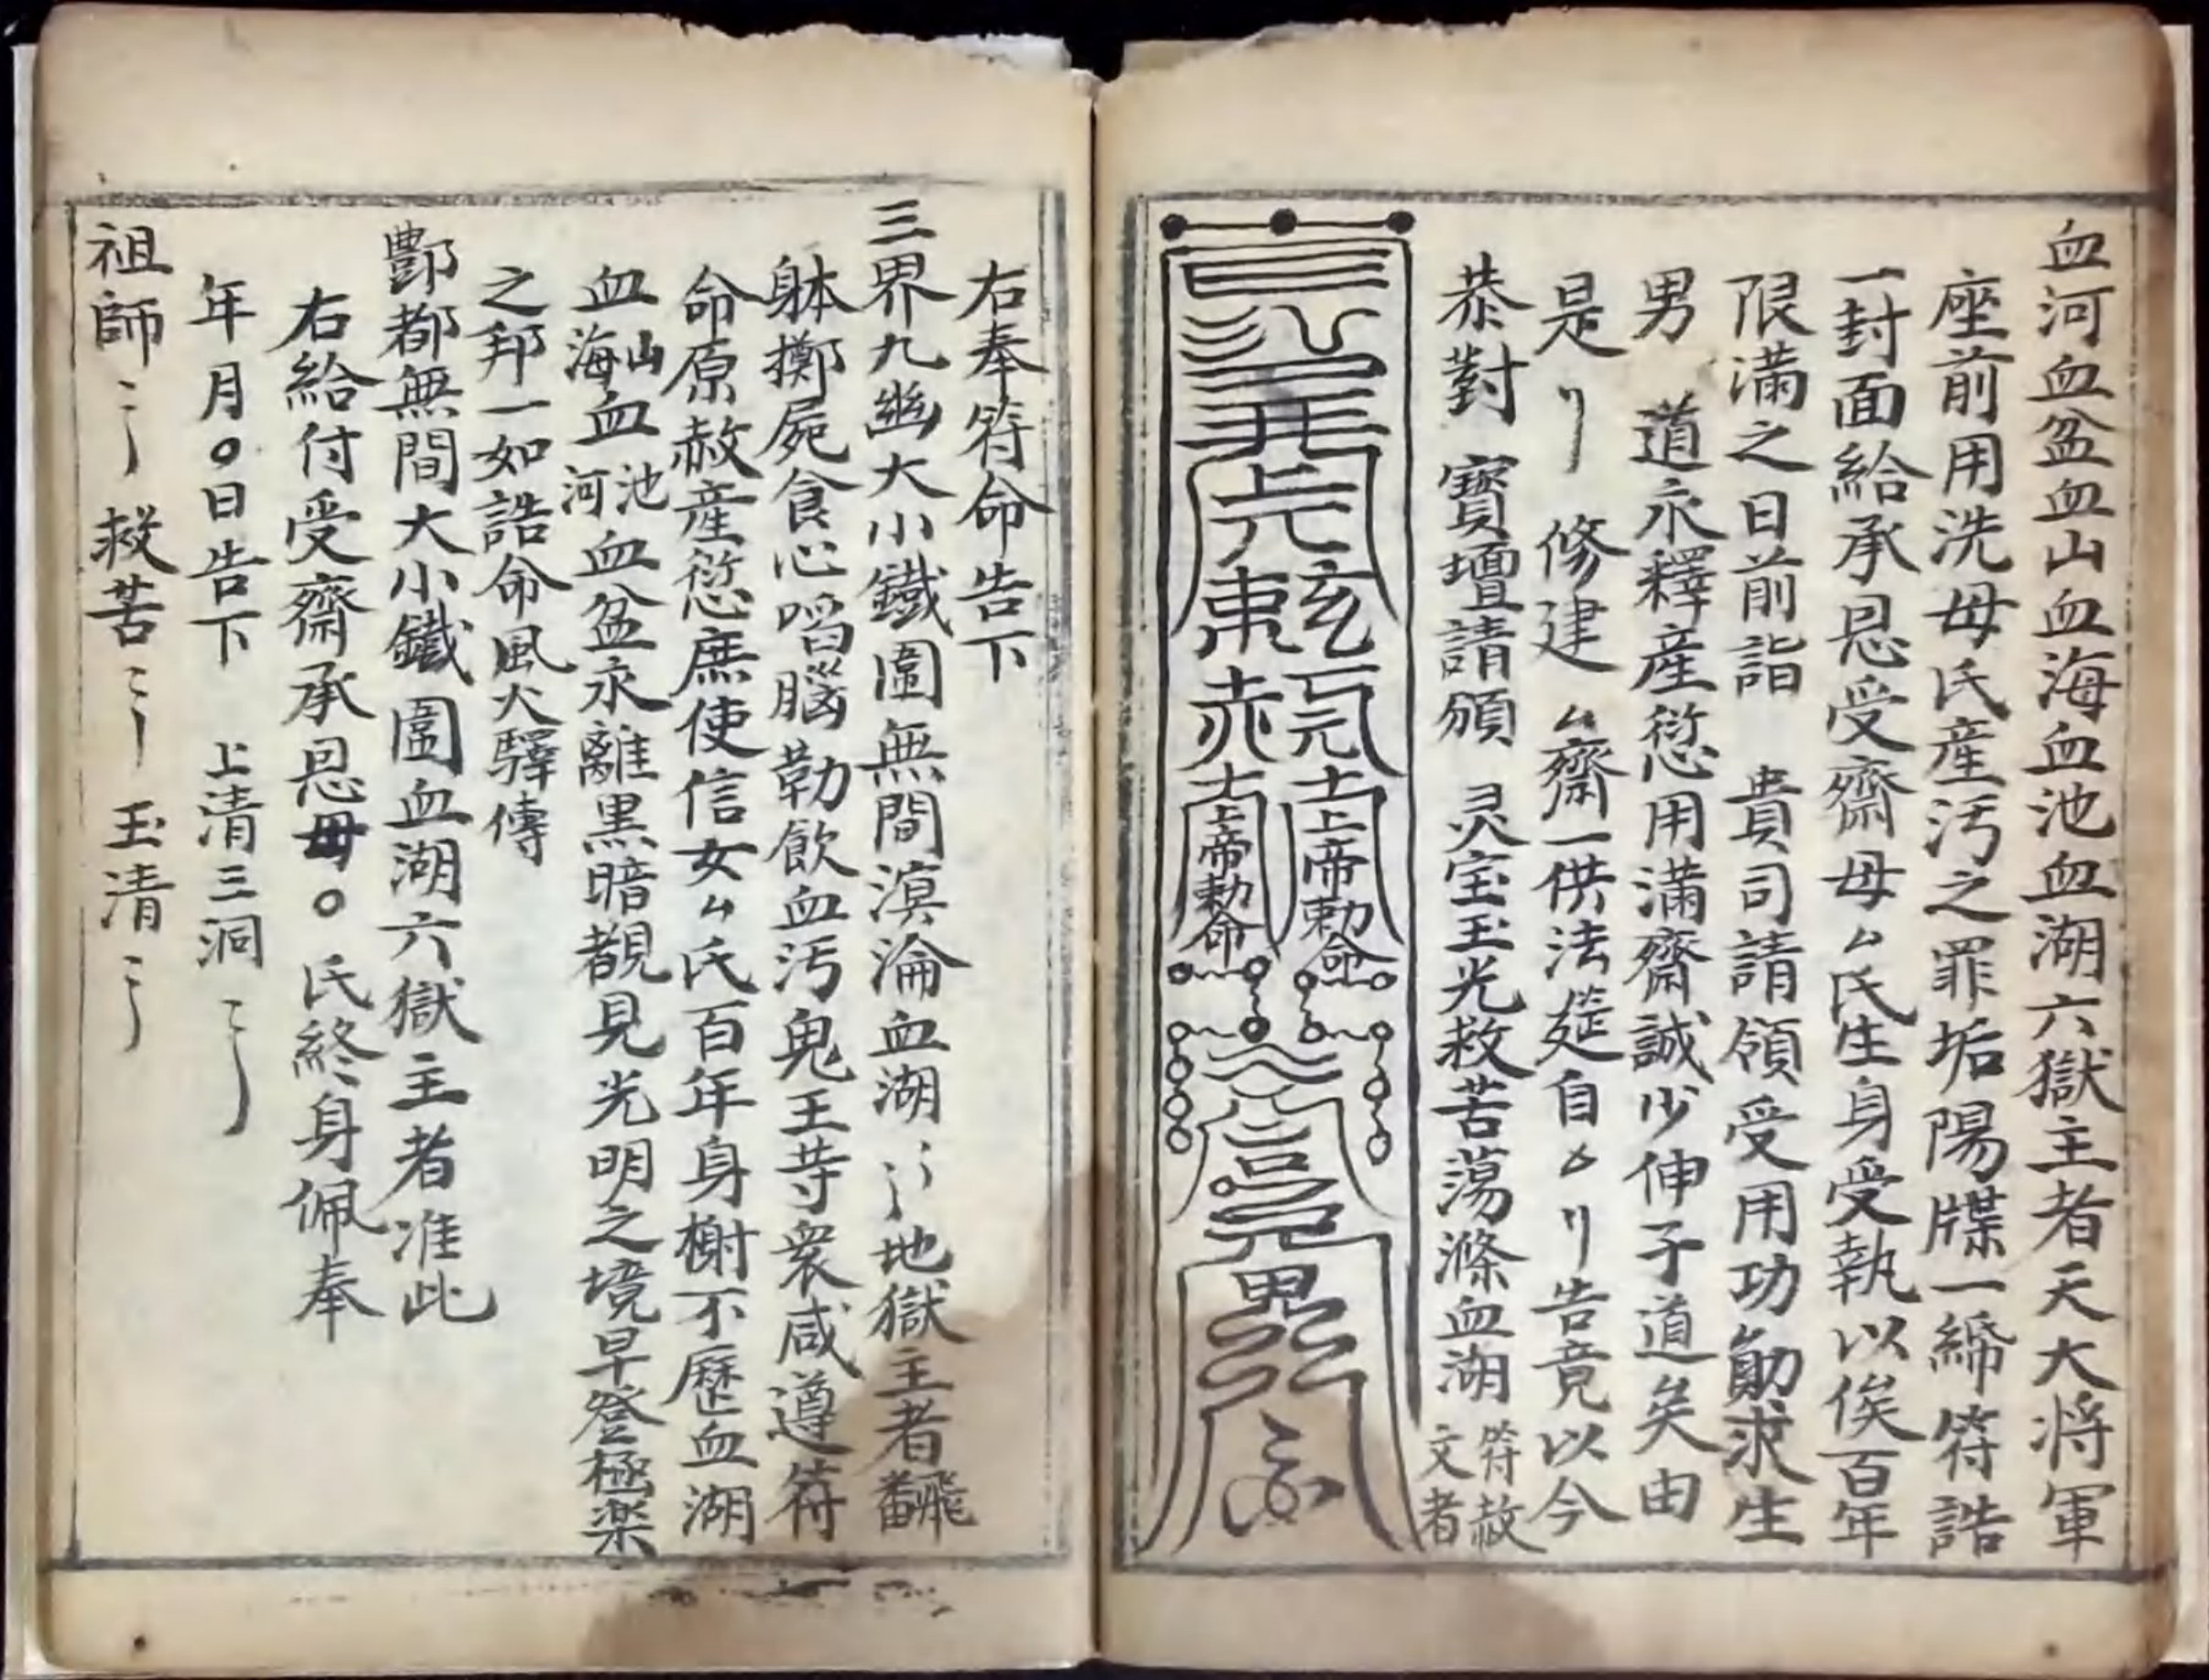 血河血盆血山血海血池血湖六獄主者天大将軍
座前用洗母氏産汚之罪垢陽牒一締符誥
一封面給承恩受齋母ㄙ氏生身受執以俟百年
限滿之日前詣 貴司請領受用功勛求生
男 道永釋産愆用滿齋誠少伸子道矣由
是〢修建ㄙ齋一供法筵自〤〢告竟以今
恭對 寶壇請頒 灵宝玉光救苦蕩滌血湖 符赦文者
玄 東
赤
上帝勅命 上帝勅命
右奉符命告下
三界九幽大小鐵圍無間溟淪血湖〻〻地獄主者飜飛
躰擲屍食心啗腦勒飲血汚鬼王等衆咸遵符
命原赦産愆庶使信女ㄙ氏百年身榭不歷血湖
血山海血池河血盆永離黒暗覩見光明之境早登極楽
之邦一如誥命風火驛傳
酆都無間大小鐵圍血湖六獄主者准此
右給付受齋承恩母〇氏終身佩奉
年月〇日告下 上清三洞〻〻
祖師〻〻救苦〻〻玉清〻〻